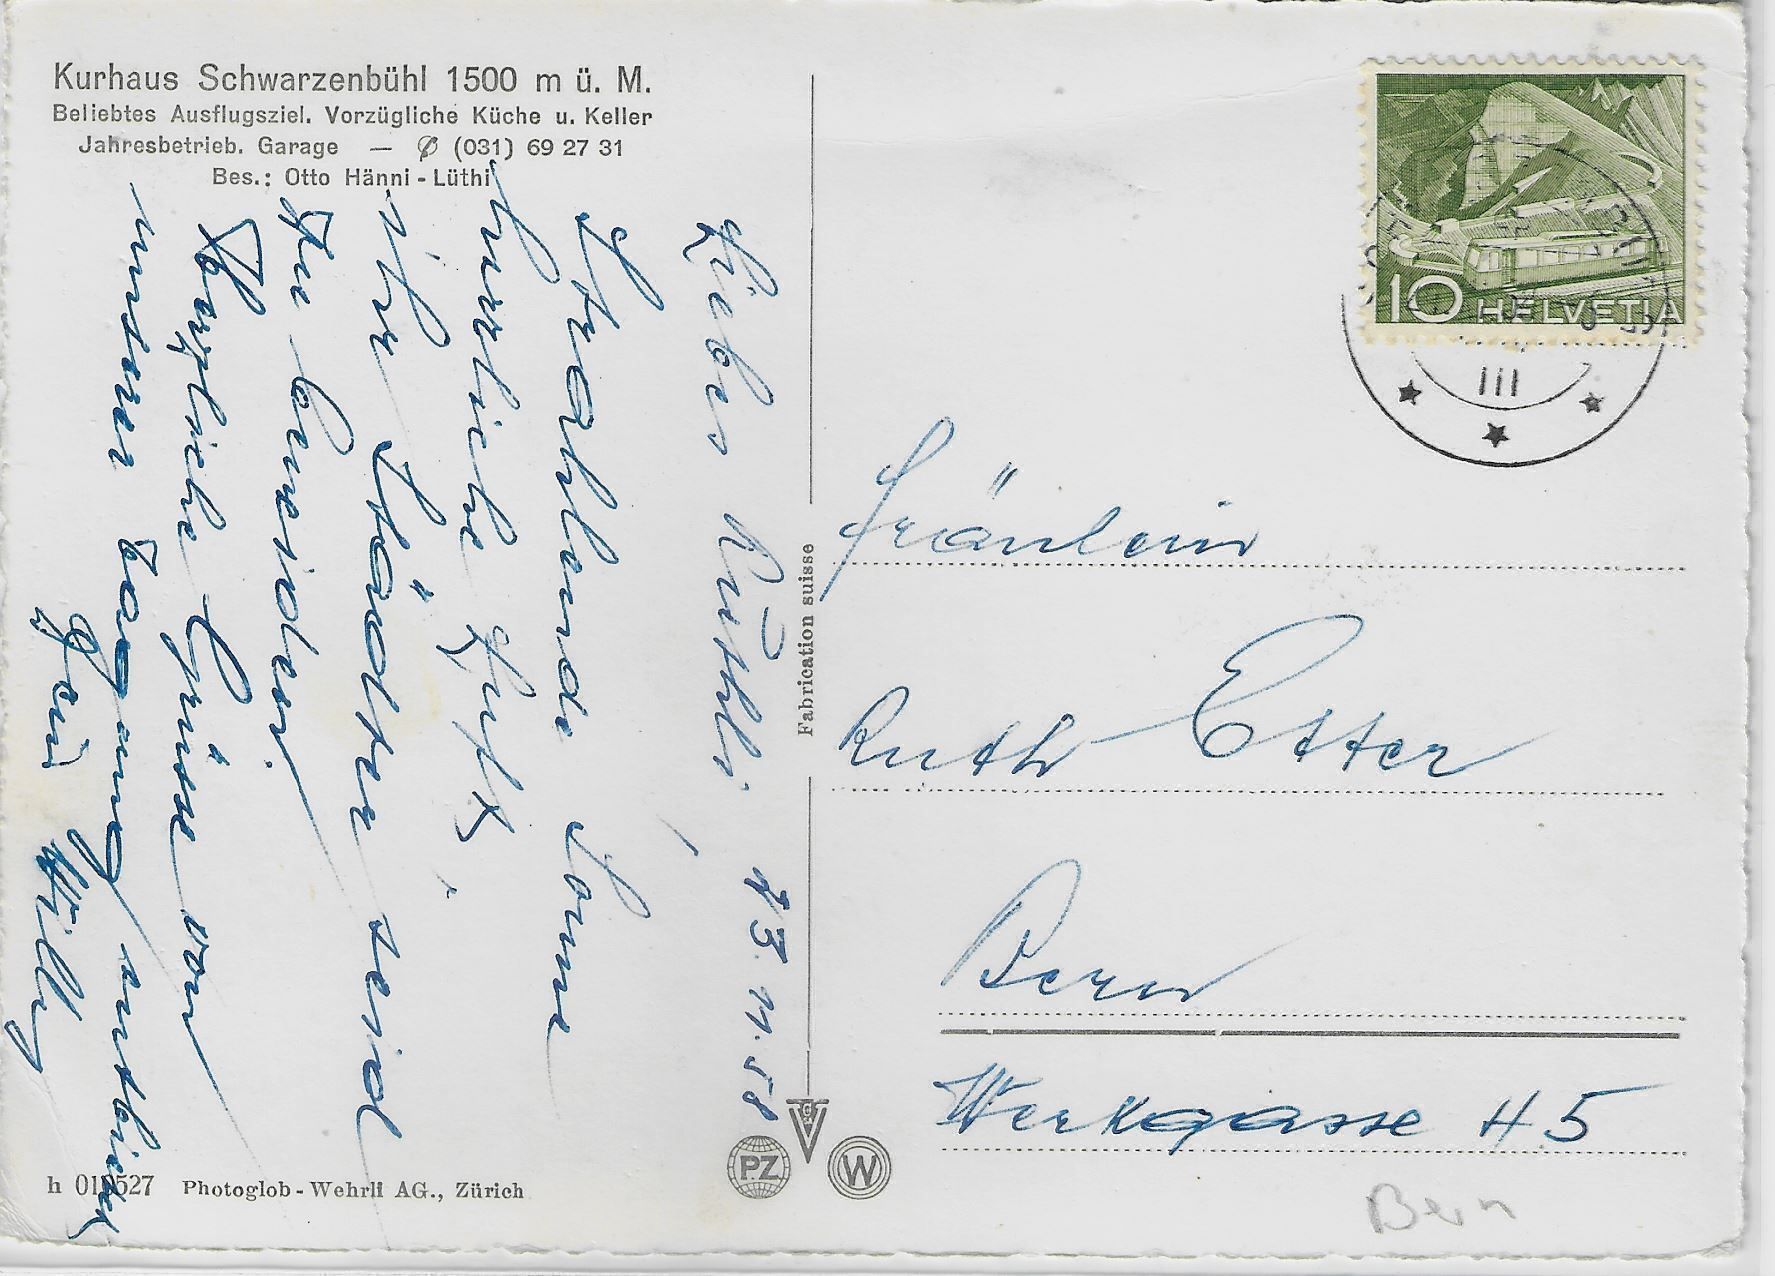 Kurhaus Schwarzenbühl 1500 m ü. M.
Beliebtes Ausflugsziel. Vorzügliche Küche u. Keller
Jahresbetrieb. Garage — (031) 69 27 31
Bes.: Otto Hänni - Lüthi
13. 11. 58
Liebes Rüthli,
Strahlende Sonne
herrliche Luft,
ihr Städter seid
zu beneiden.
Herzliche Grüsse von
unserer Tagung entbietet
Dein Willy
Fabrication suisse
10 HELVETIA
III
Fräulein
Ruth Etter
Bern
Werkgasse 45
Bern
h 010527 Photoglob - Wehrli AG., Zürich
PZ
W